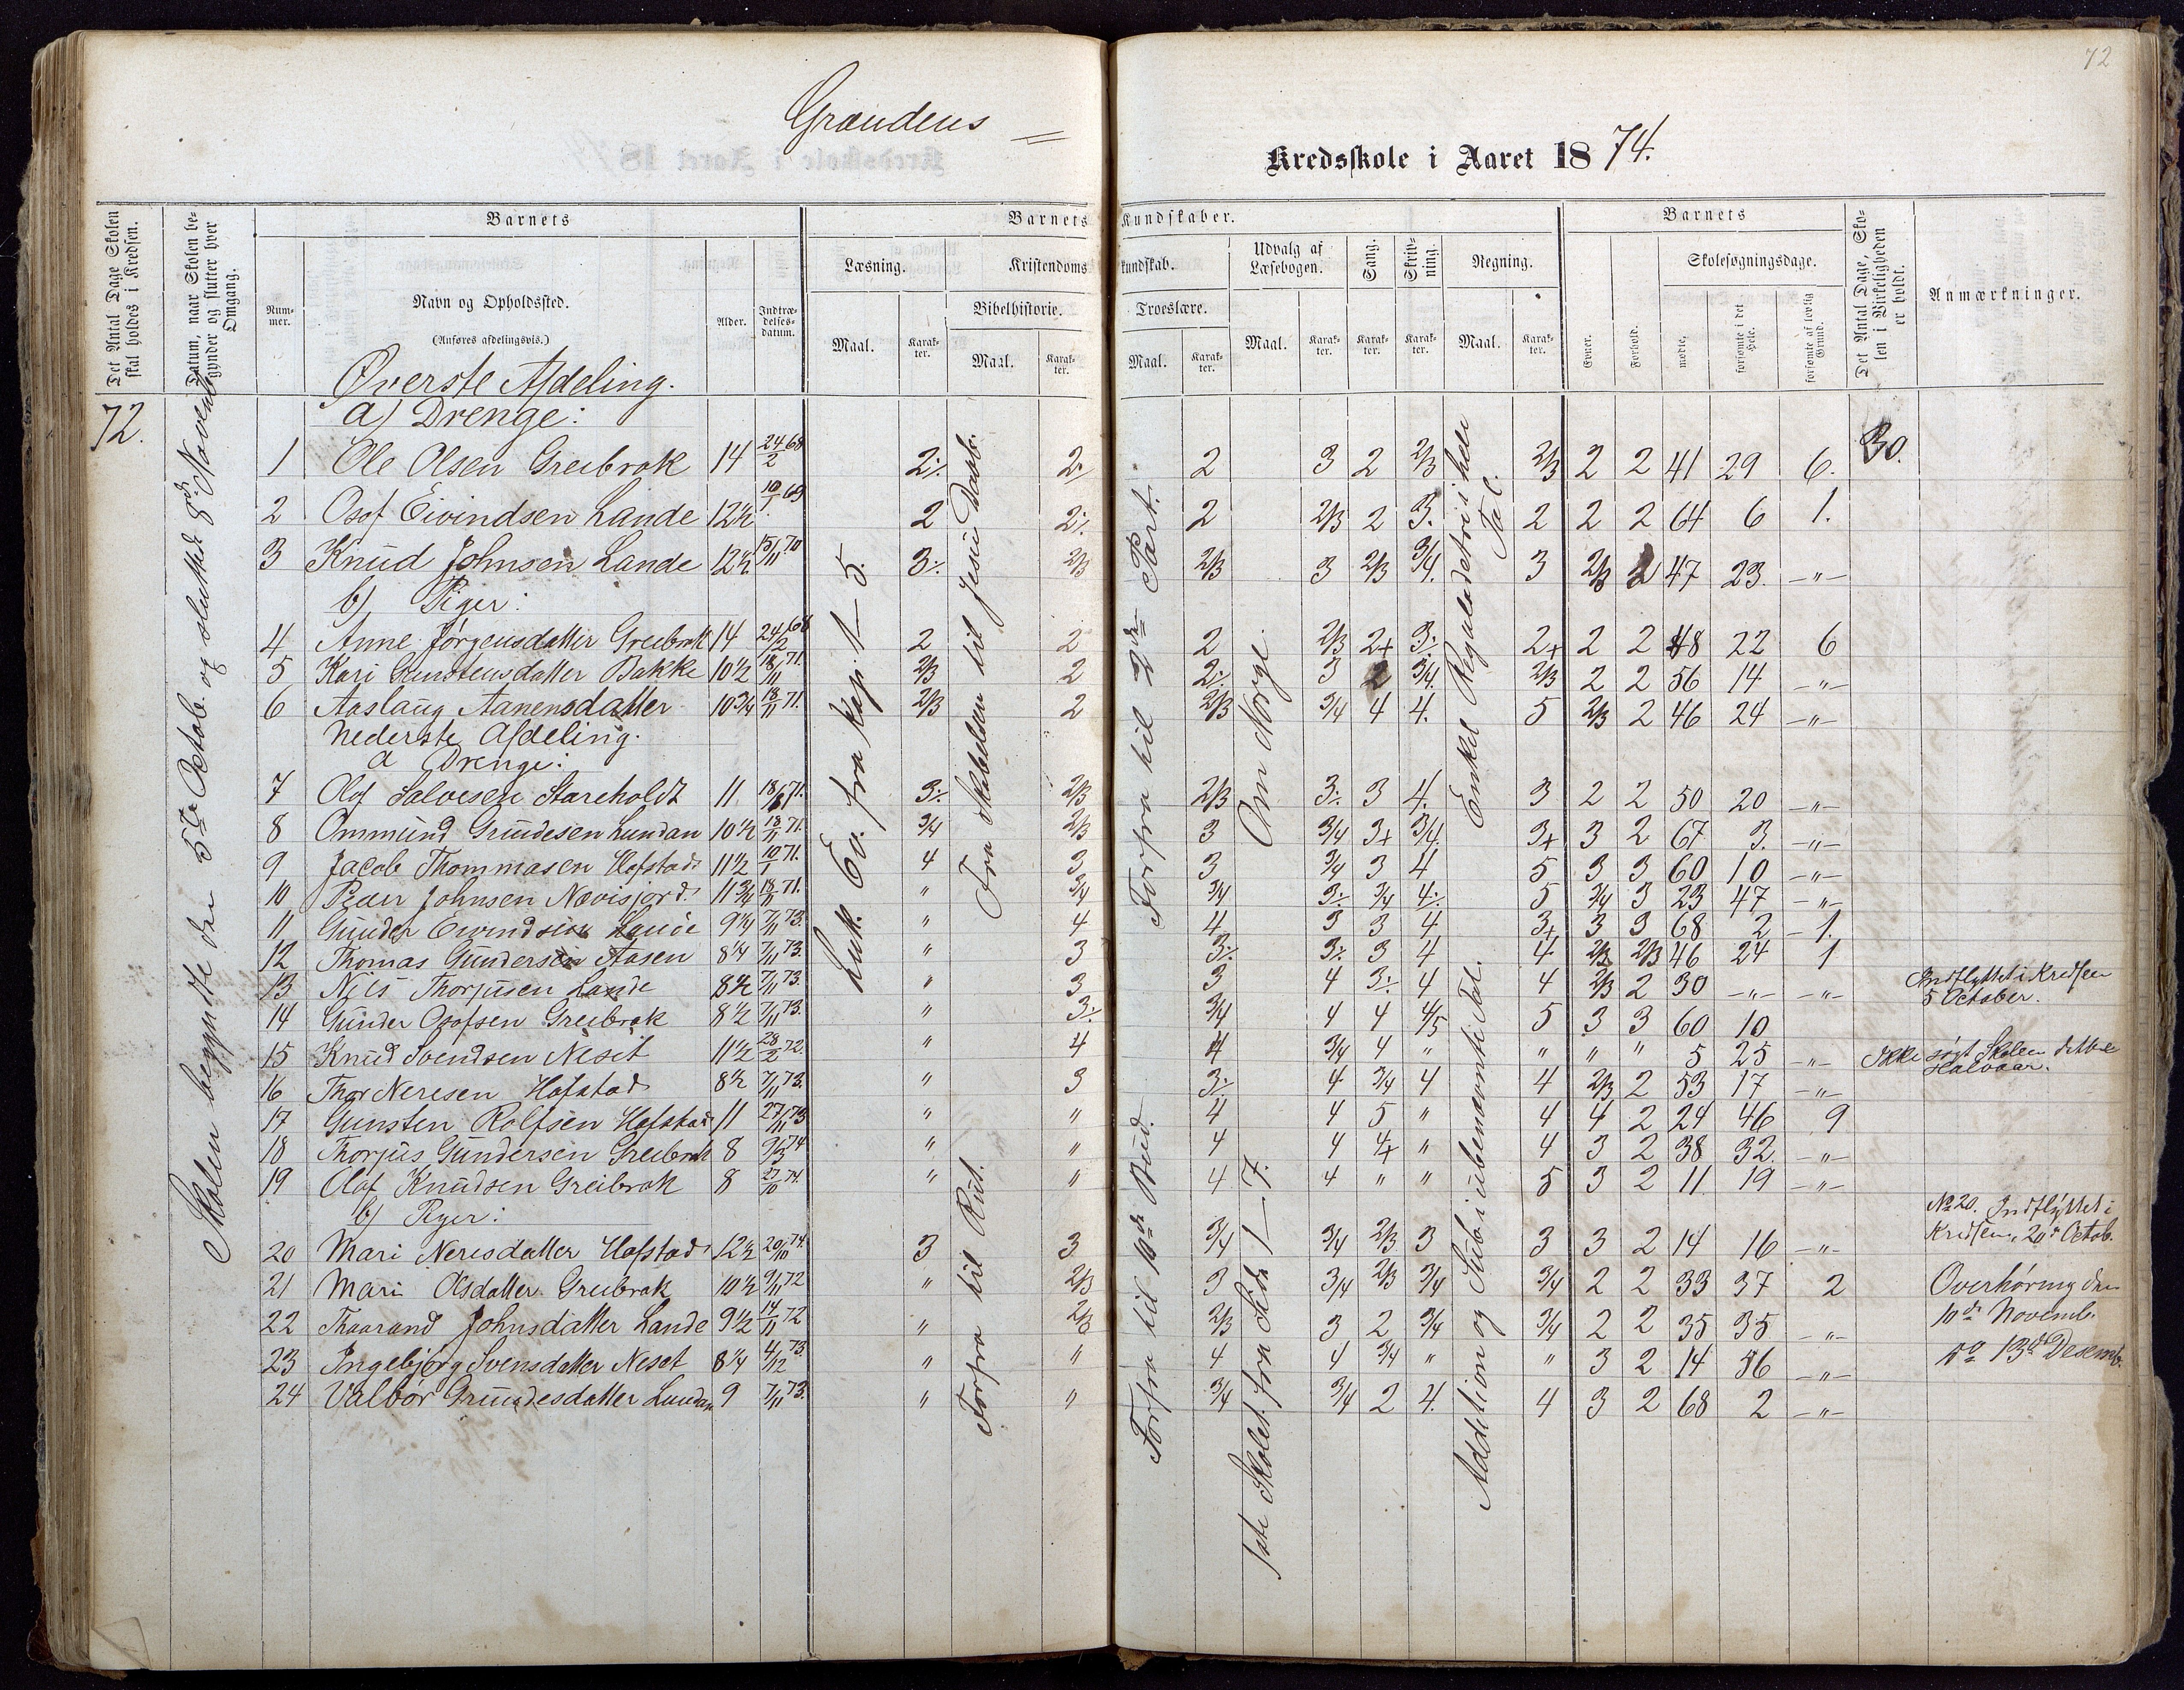 72
Grændens =
Kredsskole i Aaret 1874.
Det Antal Dage Skolen skal holdes i Kredsen.
Datum, naar Skolen begynder og slutter hver Omgang.
Barnets
Nummer.
Navn og Opholdssted.
(Anføres afdelingsvis.)
Alder.
Indtrædelsesdatum.
Barnets Kundskaber.
Læsning.
Maal. Karakter.
Kristendomskundskab.
Bibelhistorie.
Maal. Karakter.
Troeslære.
Maal. Karakter.
Udvalg af Læsebogen.
Maal. Karakter.
Sang.
Karakter.
Skrivning.
Karakter.
Regning.
Maal. Karakter.
Barnets
Evner. Forhold.
Skolesøgningsdage.
mødte. forsømte i det Hele. forsømte af lovlig Grund.
Det Antal Dage, Skolen i Virkeligheden er holdt.
Anmærkninger.
72.
Skolen begyndte den 5te Octob. og sluttet 8de Novemb.
Luk. Ev. fra Kap. 1–5.
Fra Skabelsen til Jesu Daab.
Forfra til Rut.
Forfra til 2den Part.
Forfra til 10de Bud.
Om Norge.
1ste Skolet. fra Side 1–7.
Enkel Reguladetri i hele Tal.
Addition og Sub. i ubenævnte Tal.
30.
Øverste Afdeling.
a) Drenge:
1 Ole Olsen Greibrok 14 24/2 68 2÷ 2÷ 2 3 2 2/3 2/3 2 2 41 29 6.
2 Osof Eivindsen Lande 12½ 10/1 69 2 2÷ 2 2/3 2 3. 2 2 2 64 6 1.
3 Knud Johnsen Lande 12½ 15/11 70 3÷ 2/3 2/3 3 2/3 3/4. 3 2/3 2 47 23. –"–
b) Piger:
4 Anne Jørgensdatter Greibrok 14 24/2 68 2 2 2 2/3 2+ 3÷ 2+ 2 2 48 22 6
5 Kari Gunstensdatter Bakke 10½ 18/11 71. 2/3 2 2÷ 3 2 3/4. 2/3 2 2 56 14 –"–
6 Aaslaug Aanensdatter 10¾ 18/11 71. 2/3 2 2/3 3/4 4 4. 5 2/3 2 46 24 –"–
Nederste Afdeling.
a Drenge:
7 Olaf Salvesen Stareholdt 11 18/11 71. 3÷ 2/3 2/3 3÷ 3 4. 3 2 2 50 20 –"–
8 Ommund Grundesen Lundan 10½ 18/11 71. 3/4 2/3 3 3/4 3+ 3/4. 3+ 3 2 67 3. –"–
9 Jacob Thommasen Hofstad 11½ 10/1 71. 4 3 3 3/4 3 4 5 3 3 60 10 –"–
10 Peder Johnsen Nævisjord 11¾ 18/11 71. " 3/4 3/4 3÷ 3/4 4÷ 5 3/4 3 23 47 –"–
11 Gunder Eivindsen Lande 9¼ 7/11 73. " 4 4 3 3 4 3+ 3 3 68 2 –1.
12 Thomas Gundersen Aasen 8¼ 7/11 73. " 3 3÷ 3÷ 3 4 4 2/3 2/3 46 24 1
13 Nils Thorjusen Lande 8½ 7/11 73. " 3 3 4 3÷ 4 4 2/3 2 30 –"– –"– Indflyttet i Kredsen 5 October.
14 Gunder Osofsen Greibrok 8½ 7/11 73. " 3÷ 3/4 4 4 4/5 5 3 3 60 10
15 Knud Svendsen Neset 11½ 28/2 72. " 4 4 3/4 4 " " " " 5 25 –"– Ikke søgt Skolen dette Halvaar.
16 Thor Neresen Hofstad 8½ 7/11 73. " 3 3÷ 4 3/4 4 4 2/3 2 53 17 –"–
17 Gunsten Rolfsen Hofstad 11 27/11 73 " " 4 4 5 " 4 4 2 24 46 9
18 Thorjus Gundersen Greibrok 8 9/3 74 " " 4 4 4+ " 4 3 2 38 32. –"–
19 Olaf Knudsen Greibrok 8 27/10 74. " " 4 4 " " 5 3 2 11 19 –"–
b) Piger:
20 Mari Neresdatter Hofstad 12½ 20/10 74. 3 3 3/4 3/4 2/3 3 3 3 2 14 16 –"– No 20. Indflyttet i Kredsen, 20de Octob.
21 Mari Olsdatter Greibrok 10½ 9/11 72 " 2/3 3 3/4 2/3 3/4 3/4 2 2 33 37 2 Overhøring den
22 Thaarand Johnsdatter Lande 9½ 14/11 72 " 2/3 2/3 3 2 3/4 3/4 2 2 35 35 –"– 10de Novemb.
23 Ingebjørg Svensdatter Neset 8¼ 4/12 73. " " 4 4 3/4 " " 3 2 14 56 –"– 13de Desemb.
24 Valbor Grundesdatter Lundan 9 7/11 73. " " 3/4 3/4 2 4. 4 3 2 68 2 –"–